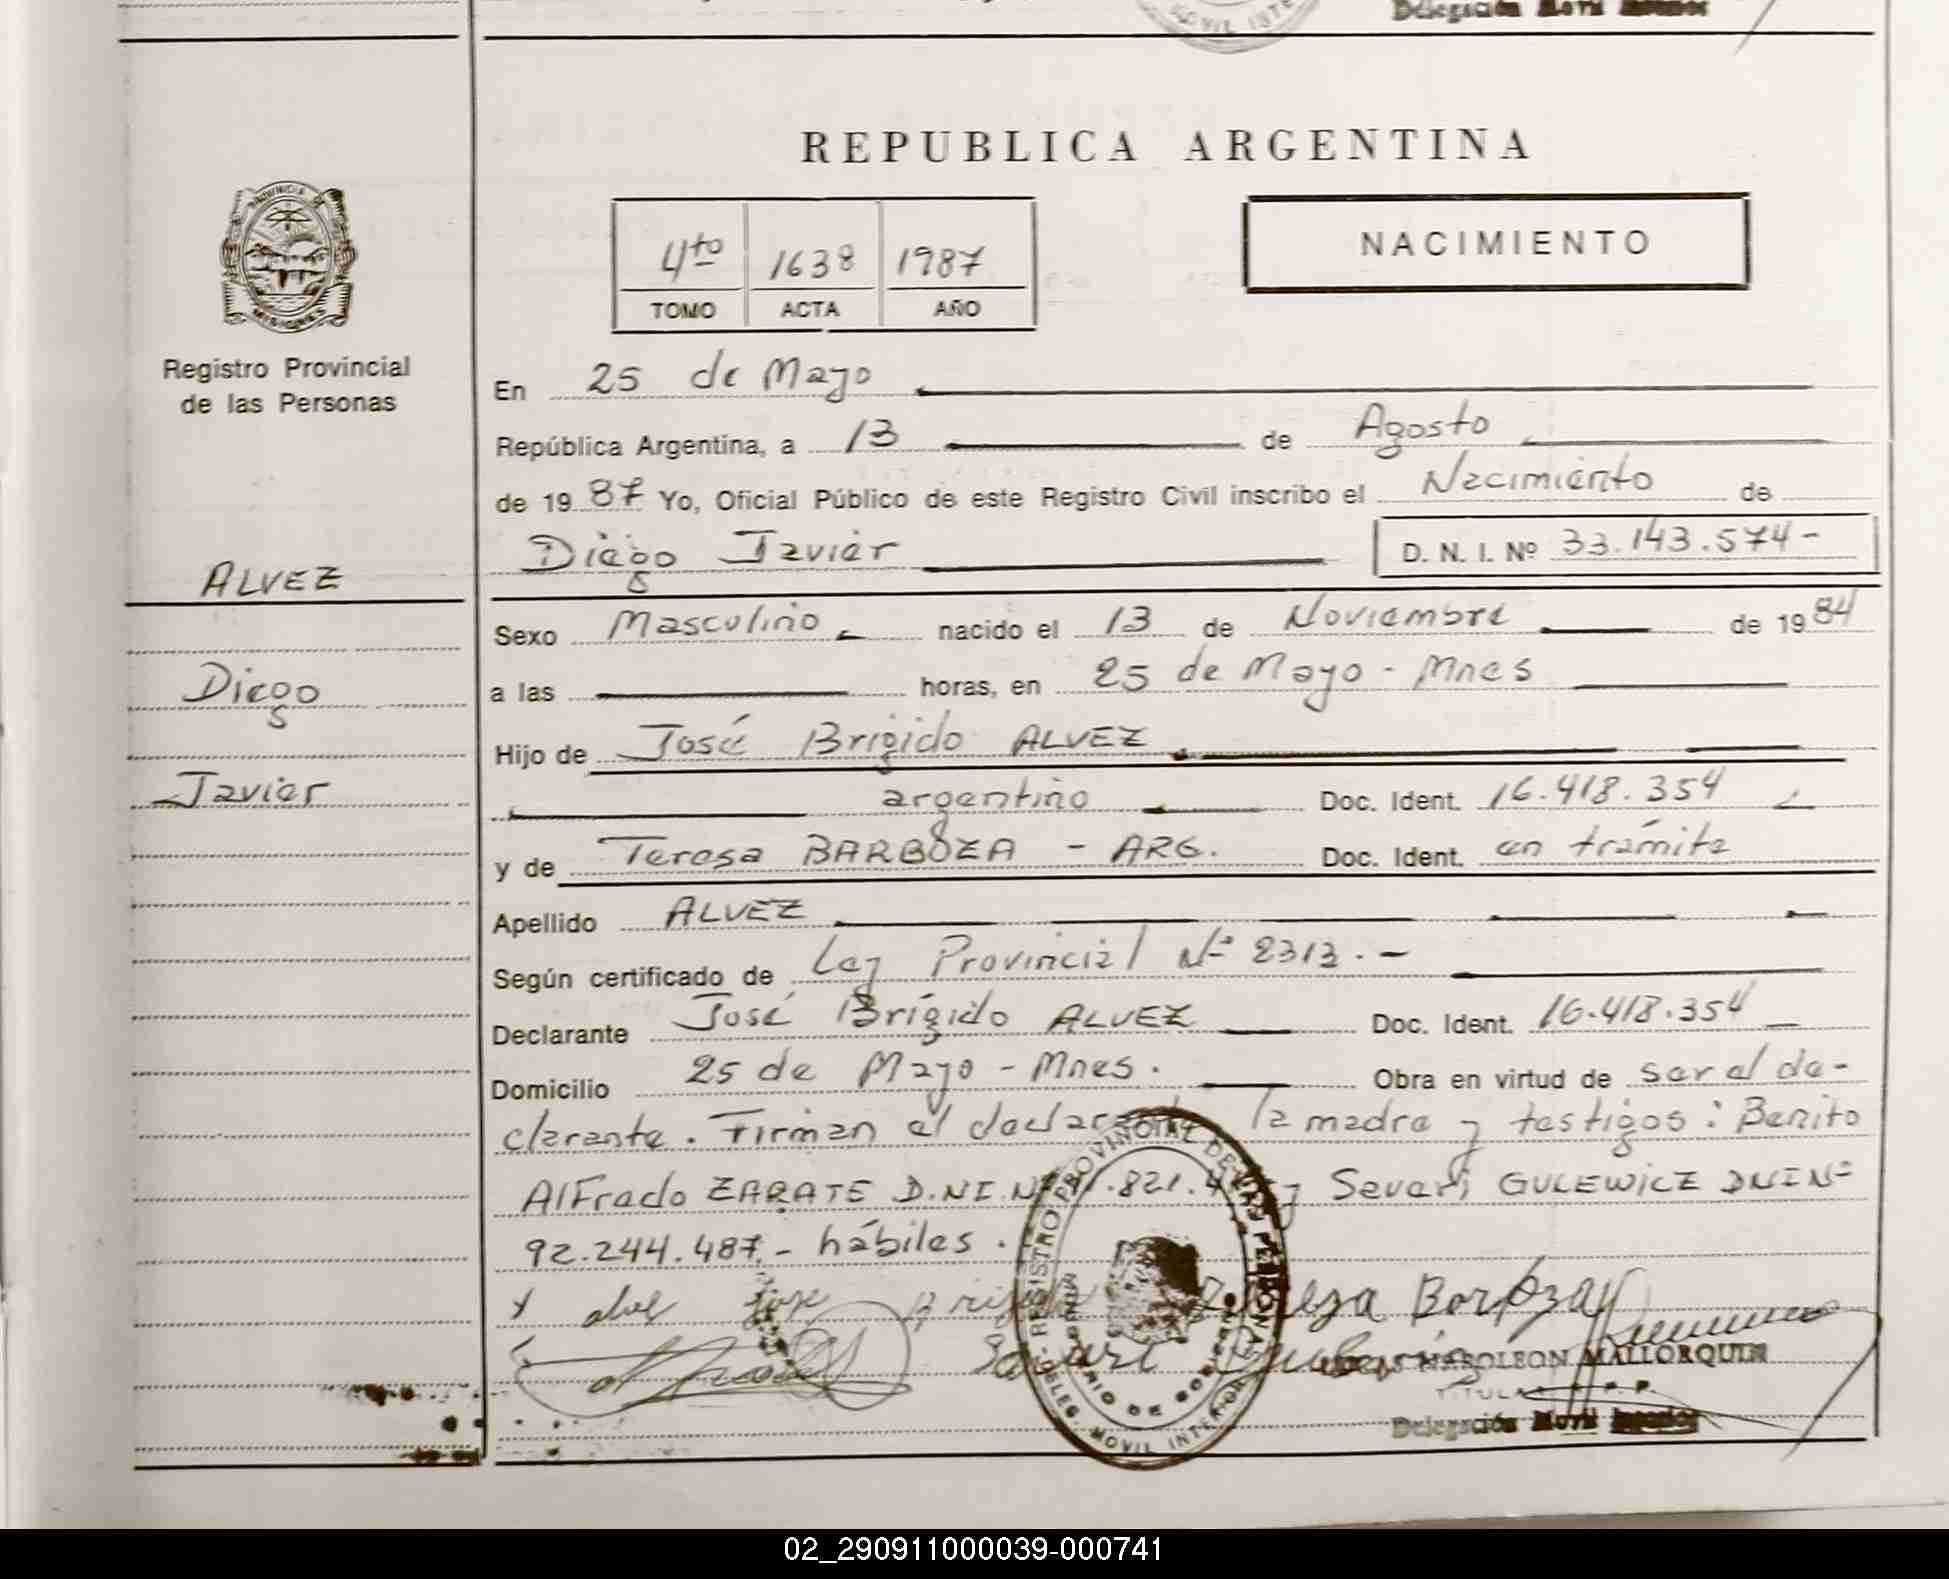 Delegación Movil Interior
MOVIL INTE
REPUBLICA ARGENTINA
4to 1638 1987
TOMO ACTA AÑO
NACIMIENTO
PROVINCIA DE
MISIONES
Registro Provincial
de las Personas
En 25 de Mayo
República Argentina, a 13 de Agosto
de 1987 Yo, Oficial Público de este Registro Civil inscribo el Nacimiento de
Diego Javier D. N. I. Nº 33.143.574-
ALVEZ
Diego
Javier
Sexo Masculino nacido el 13 de Noviembre de 1984
a las horas, en 25 de Mayo - Mnes
Hijo de José Brigido ALVEZ
argentino Doc. Ident. 16.418.354
y de Teresa BARBOZA - ARG. Doc. Ident. en trámite
Apellido ALVEZ
Según certificado de Ley Provincial Nº 2313.-
Declarante José Brígido ALVEZ Doc. Ident. 16.418.354
Domicilio 25 de Mayo - Mnes. Obra en virtud de ser el de-
clarante. Firman el declarante la madre y testigos: Benito
Alfredo ZARATE D.N.I.Nº .821. y Severi GULEWICZ DNI Nº
92.244.487- hábiles.
REGISTRO PROVINCIAL DE LAS PERSONAS
MINISTERIO DE GOBIERNO
MOVIL INTERIOR
Teresa Borboza
NAPOLEON MALLORQUIN
TITULAR
Delegación Movil Interior
02_290911000039-000741